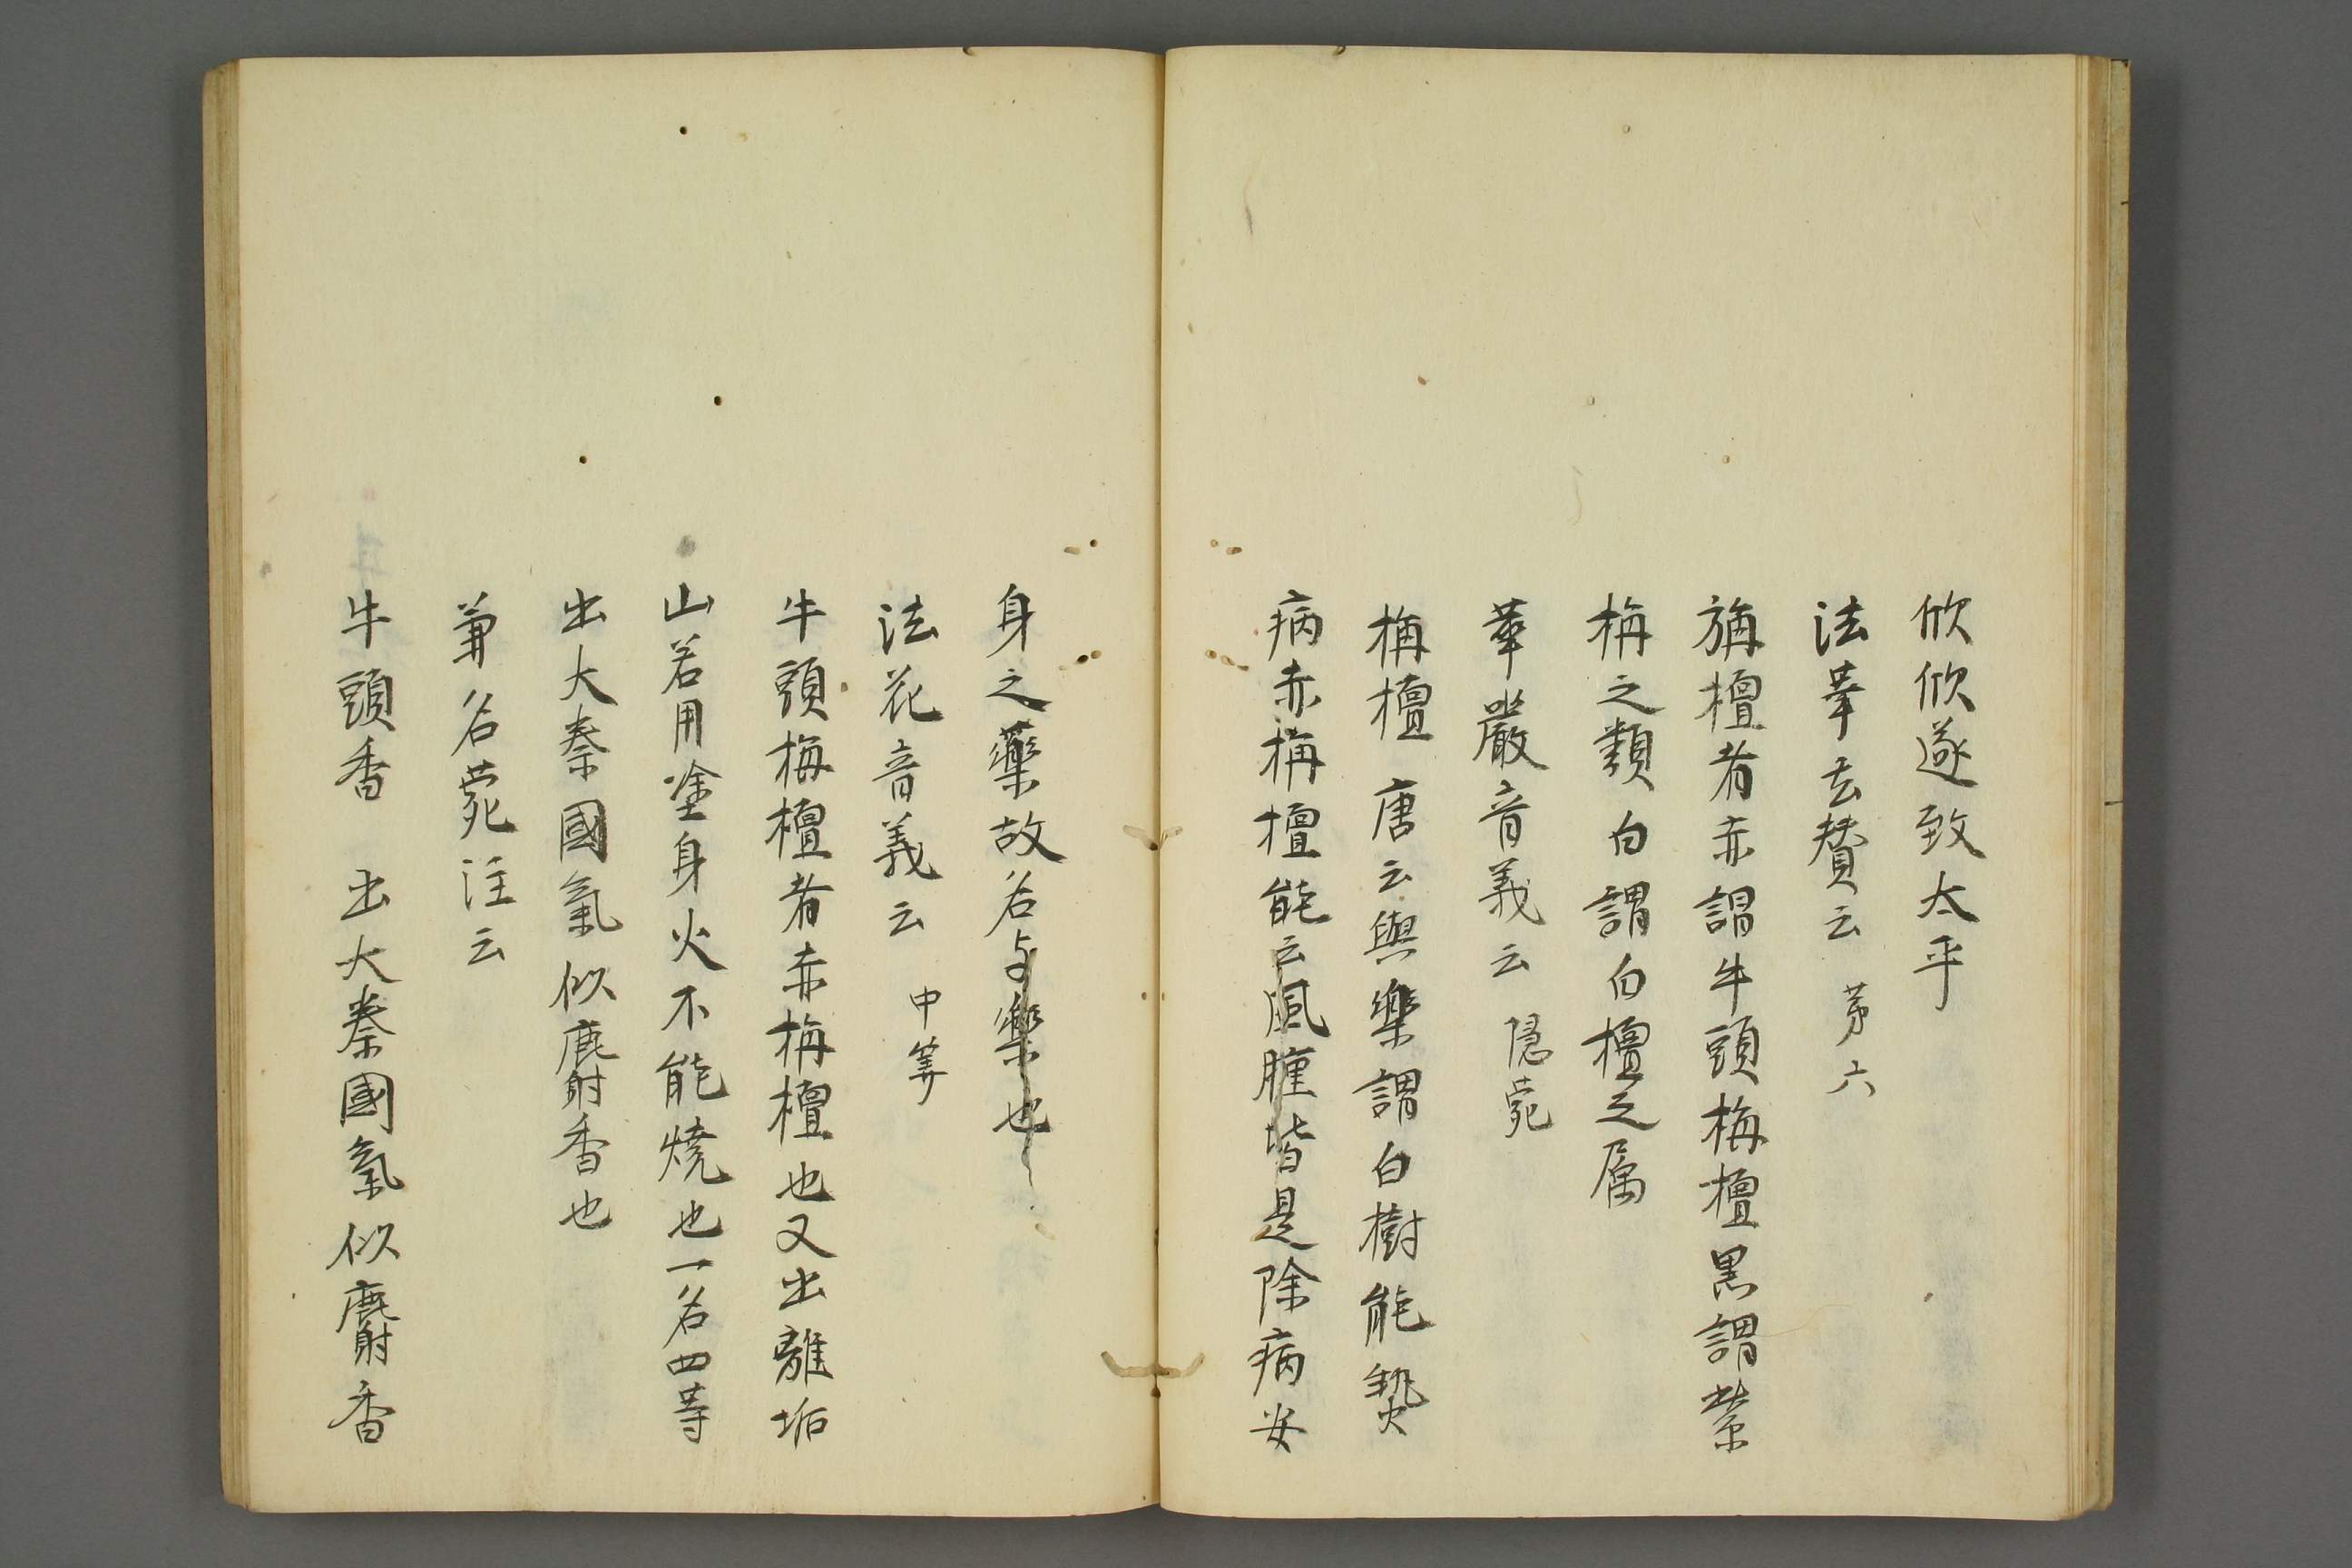 欣欣遂致太平
法華玄賛云　第六
栴檀者赤謂牛頭栴檀黒謂紫
栴之類白謂白檀之属
華嚴音義云　隠菀
栴檀　唐云與樂謂白樹能熱
病赤栴檀能云風腫皆是除病安
身之藥故名与樂也
法花音義云　中筭
牛頭栴檀者赤栴檀也又出離垢
山若用塗身火不能燒也一名四等
出大秦國氣似麝香也
兼名菀注云
牛頭香　出大秦國氣似麝香